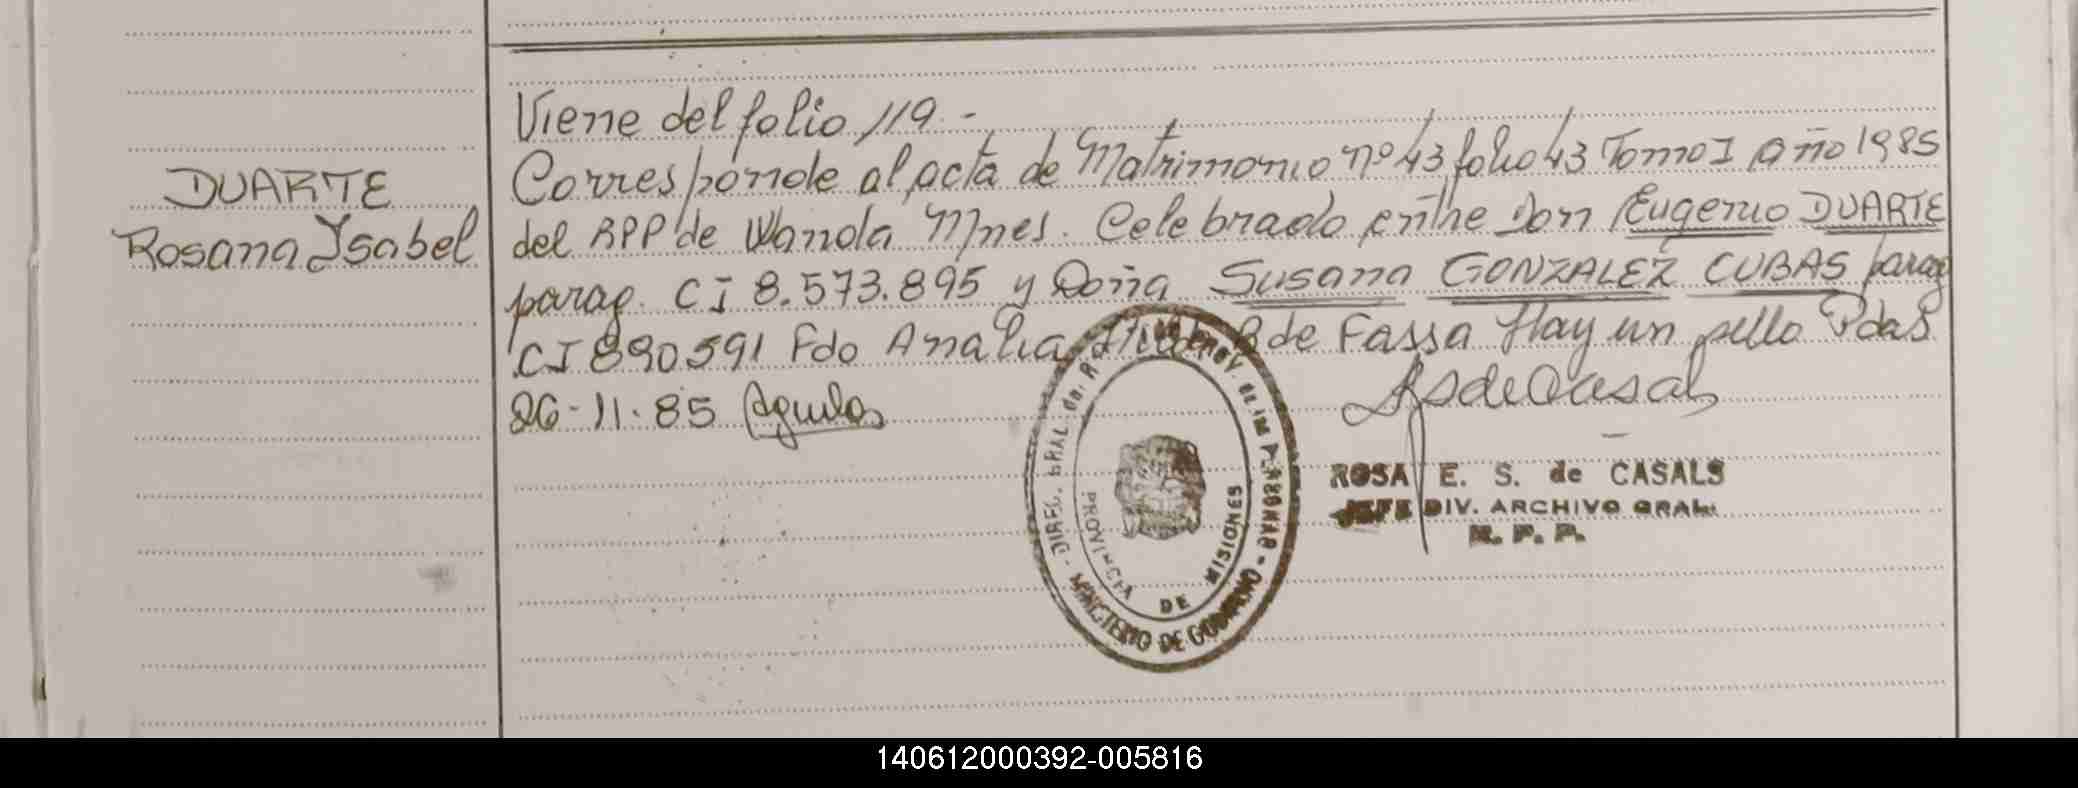 DUARTE
Rosana Ysabel
Viene del folio 119.-
Corresponde al acta de Matrimonio nº 43 folio 43 Tomo I año 1985
del RPP de Wanda Mnes. Celebrado entre Don Eugenio DUARTE
parag. CI 8.573.895 y Doña Susana GONZALEZ CUBAS parag
CI 890591 Fdo Analia de Fassa Hay un sello Pdas
26-11-85 Aguilas
ROSA E. S. de CASALS
JEFE DIV. ARCHIVO GRAL.
R. P. P.
DIREC. GRAL. del R. PROV. DE LAS PERSONAS - MINISTERIO DE GOBIERNO -
PROVINCIA DE MISIONES
140612000392-005816